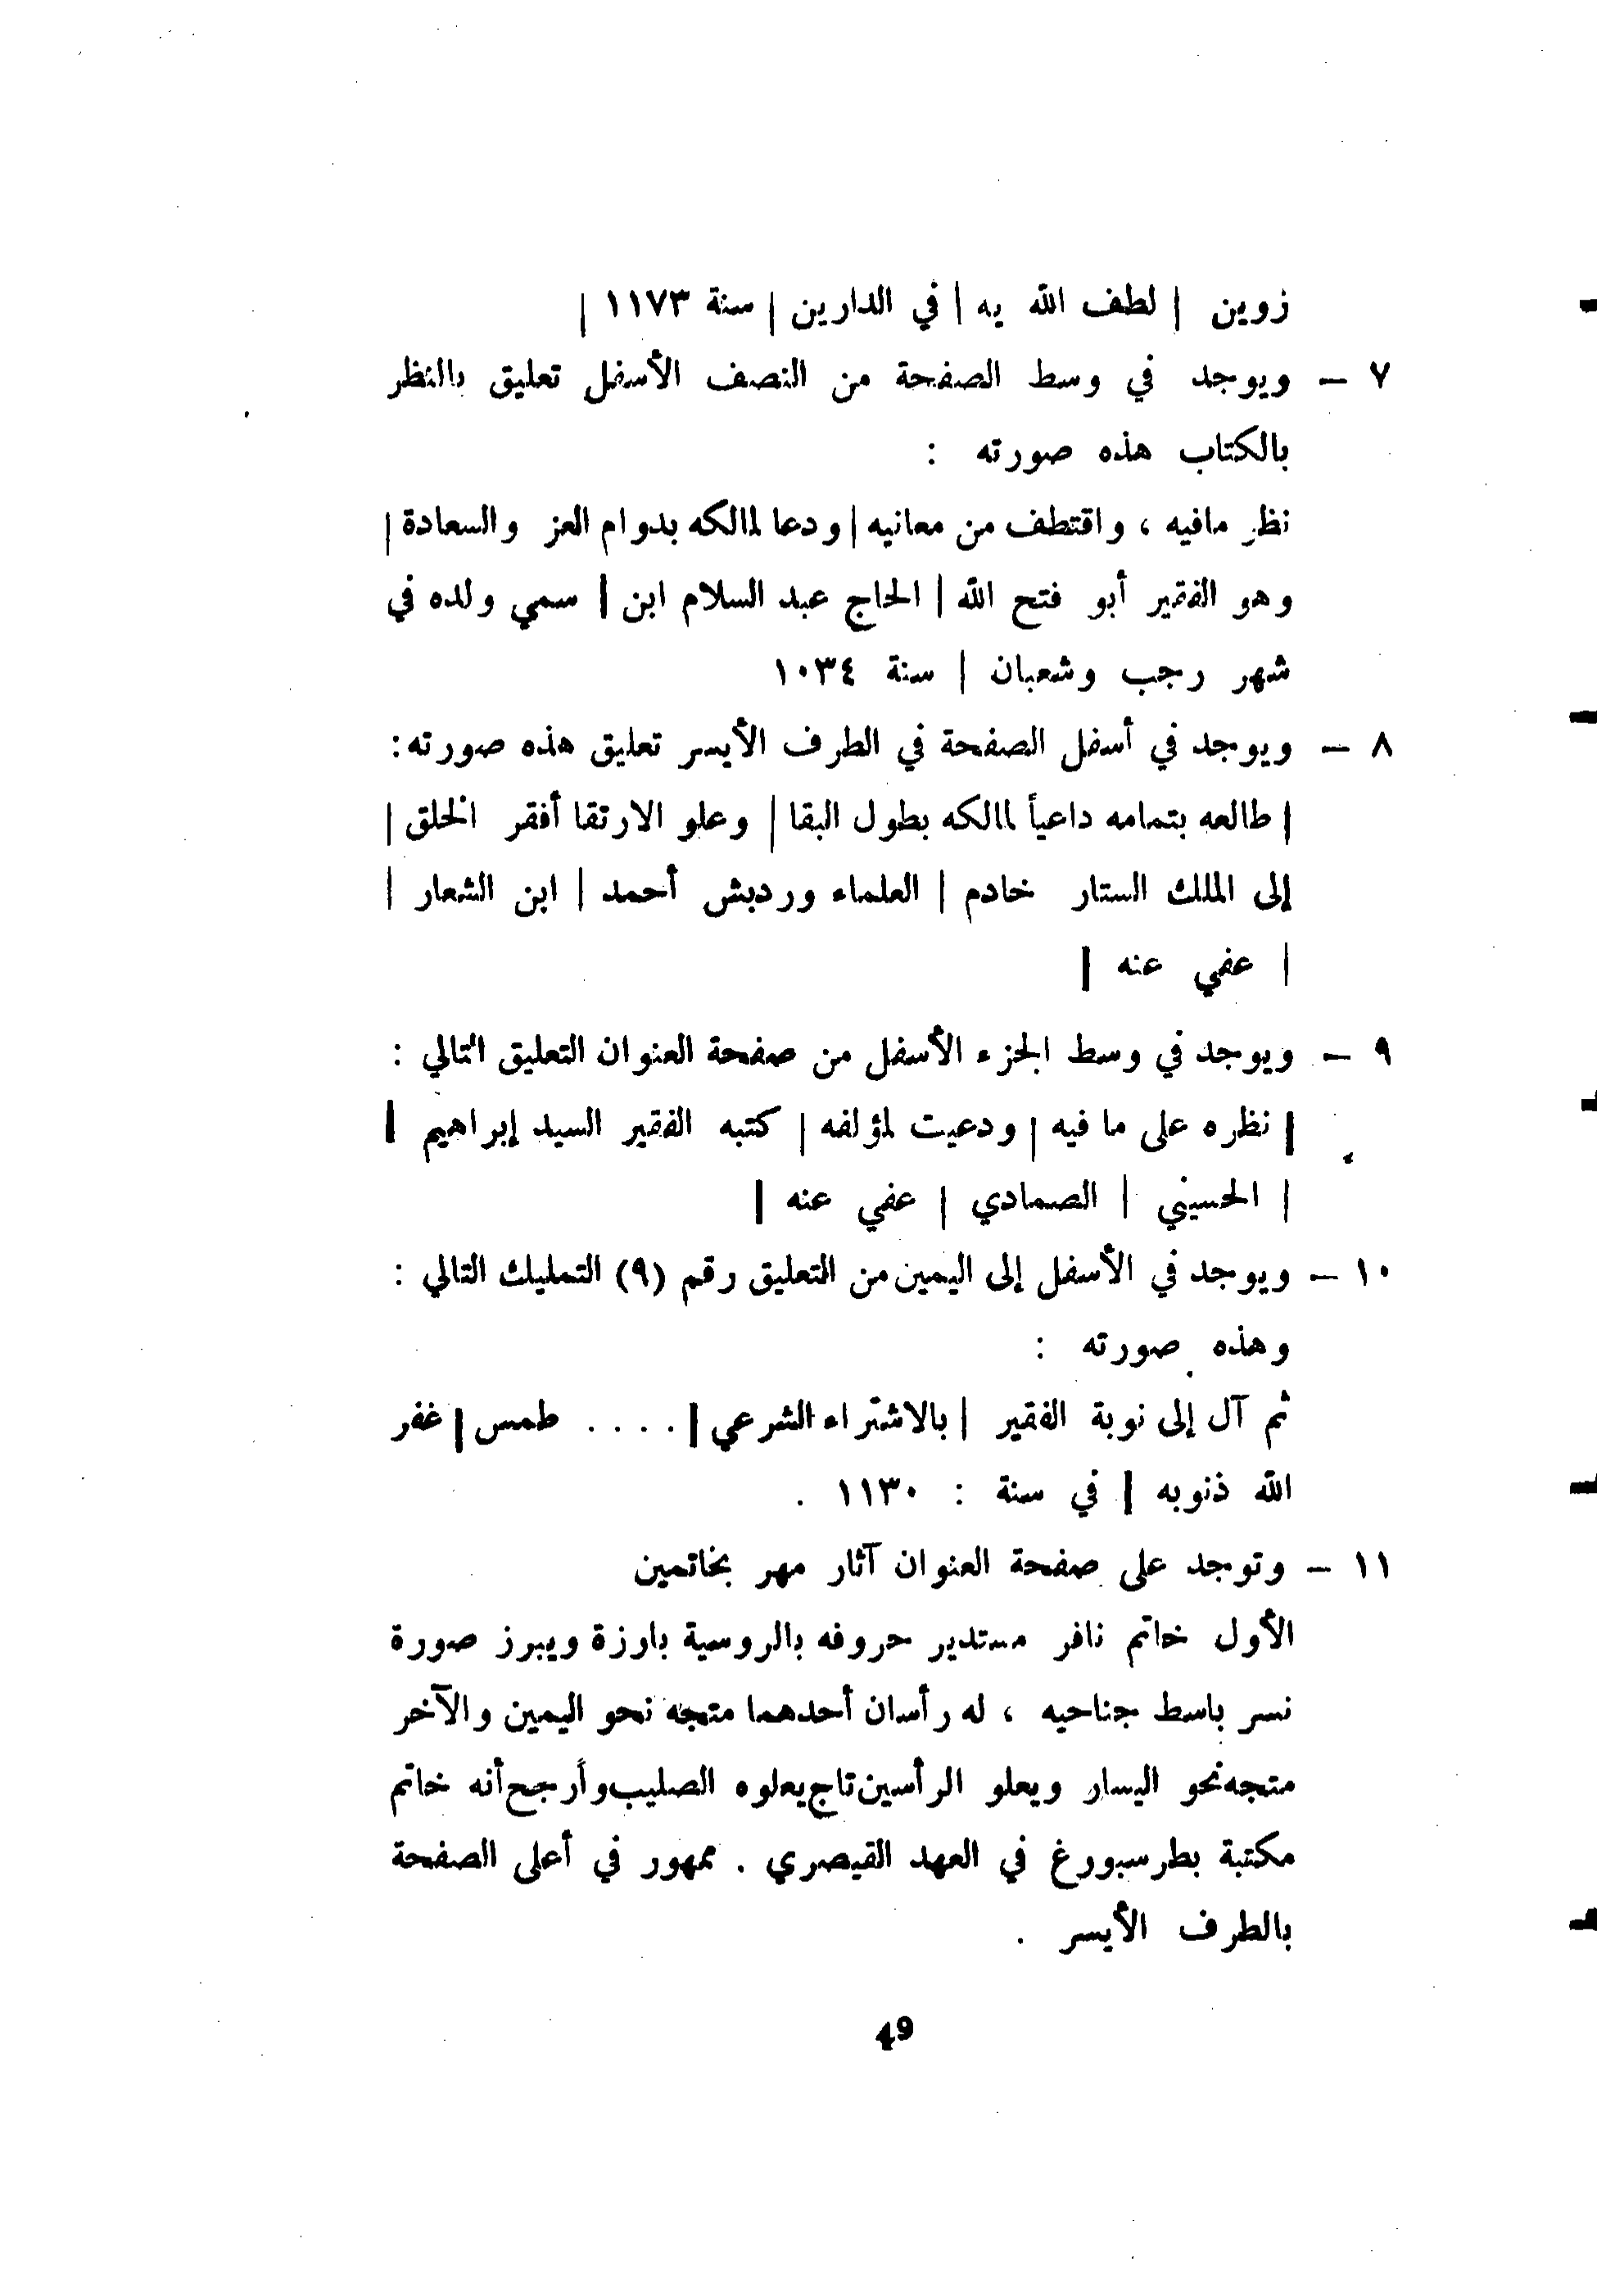 زوين | لطف الله يه | في الدارين | سنة ١١٧٣ |
٧ – ويوجد في وسط الصفحة من النصف الأسفل تعليق بالنظر
بالكتاب هذه صورته :
نظر مافيه ، واقتطف من معانيه | ودعا لمالكه بدوام العز والسعادة |
وهو الفقير أبو فتح الله | الحاج عبد السلام ابن | سمي ولده في
شهر رجب وشعبان | سنة ١٠٣٤
٨ – ويوجد في أسفل الصفحة في الطرف الأيسر تعليق هذه صورته:
| طالعه بتمامه داعياً لمالكه بطول البقا | وعلو الارتقا أفقر الخلق |
إلى الملك الستار خادم | العلماء ورديش أحمد | ابن الشعار |
| عفي عنه |
٩ – ويوجد في وسط الجزء الأسفل من صفحة العنوان التعليق التالي :
| نظره على ما فيه | ودعيت لمؤلفه | كتبه الفقير السيد إبراهيم |
| الحسيني | الصمادي | عفي عنه |
١٠ – ويوجد في الأسفل إلى اليمين من التعليق رقم (٩) التمليك التالي :
وهذه صورته :
ثم آل إلى نوبة الفقير | بالاشتراء الشرعي | .... طمس | غفر
الله ذنوبه | في سنة : ١١٣٠ .
١١ – وتوجد على صفحة العنوان آثار مهر بخاتمين
الأول خاتم نافر مستدير حروفه بالروسية بارزة ويبرز صورة
نسر باسط جناحيه ، له رأسان أحدهما متجه نحو اليمين والآخر
متجه نحو اليسار ويعلو الرأسين تاج يعلوه الصليب وأرجح أنه خاتم
مكتبة بطرسبورغ في العهد القيصري . ممهور في أعلى الصفحة
بالطرف الأيسر .
49